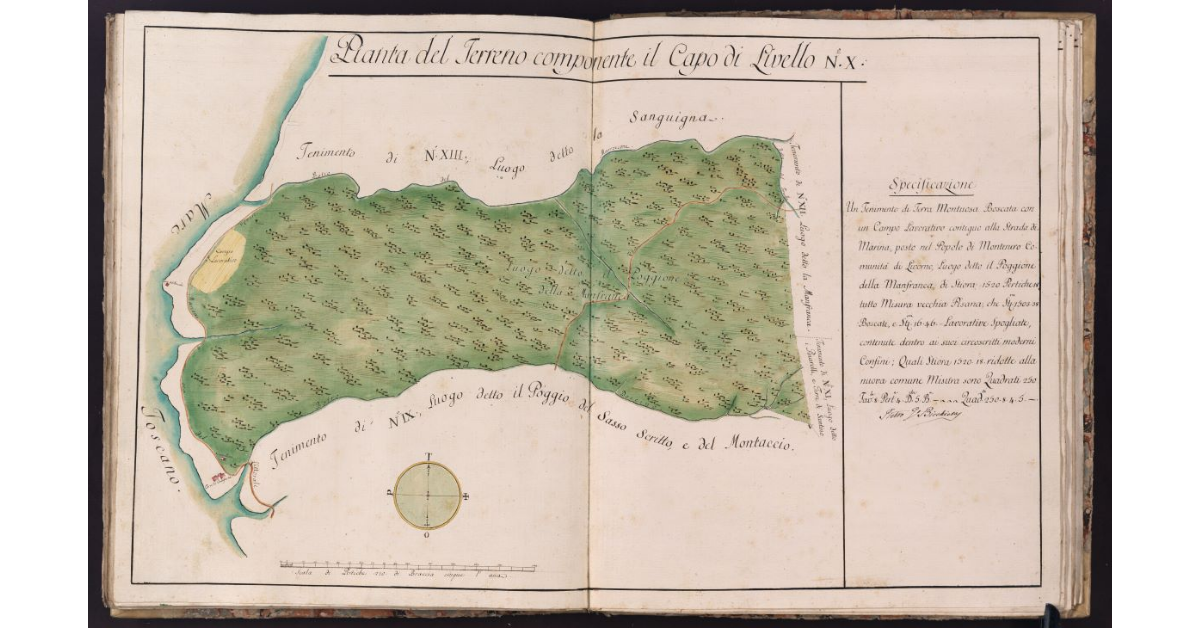 Pianta del Terreno componente il Capo di Livello N.º X.
Sanguigna.
Tenimento di N.º XIII., Luogo detto la
Mare
Toscano.
Campo Lavorativo
Luogo detto il Poggione
della Manfranca
Tenimento di N. XII. Luogo detto la Manfranca.
Tenimento di N. XI. Luogo detto
Tenimento di N.º IX., Luogo detto il Poggio del Sasso Scritto, e del Montaccio.
T
P
O
Scala di Pertiche di Braccia cinque l' una.
Specificazione
Un Tenimento di Terra Montuosa Boscata con
un Campo Lavorativo contiguo alla Strada di
Marina, posto nel Popolo di Montenero Co-
munità di Livorno, Luogo detto il Poggione
della Manfranca, di Stiora 1520 Pertiche
tutto Misura vecchia Pisana; che
Boscate, e 16.46. Lavorative Spogliate,
contenute dentro ai suoi circoscritti moderni
Confini; Quali Stiora 1520 ridotte alla
nuova comune Misura sono Quadrati 230
Quad. 230.8.4.5.